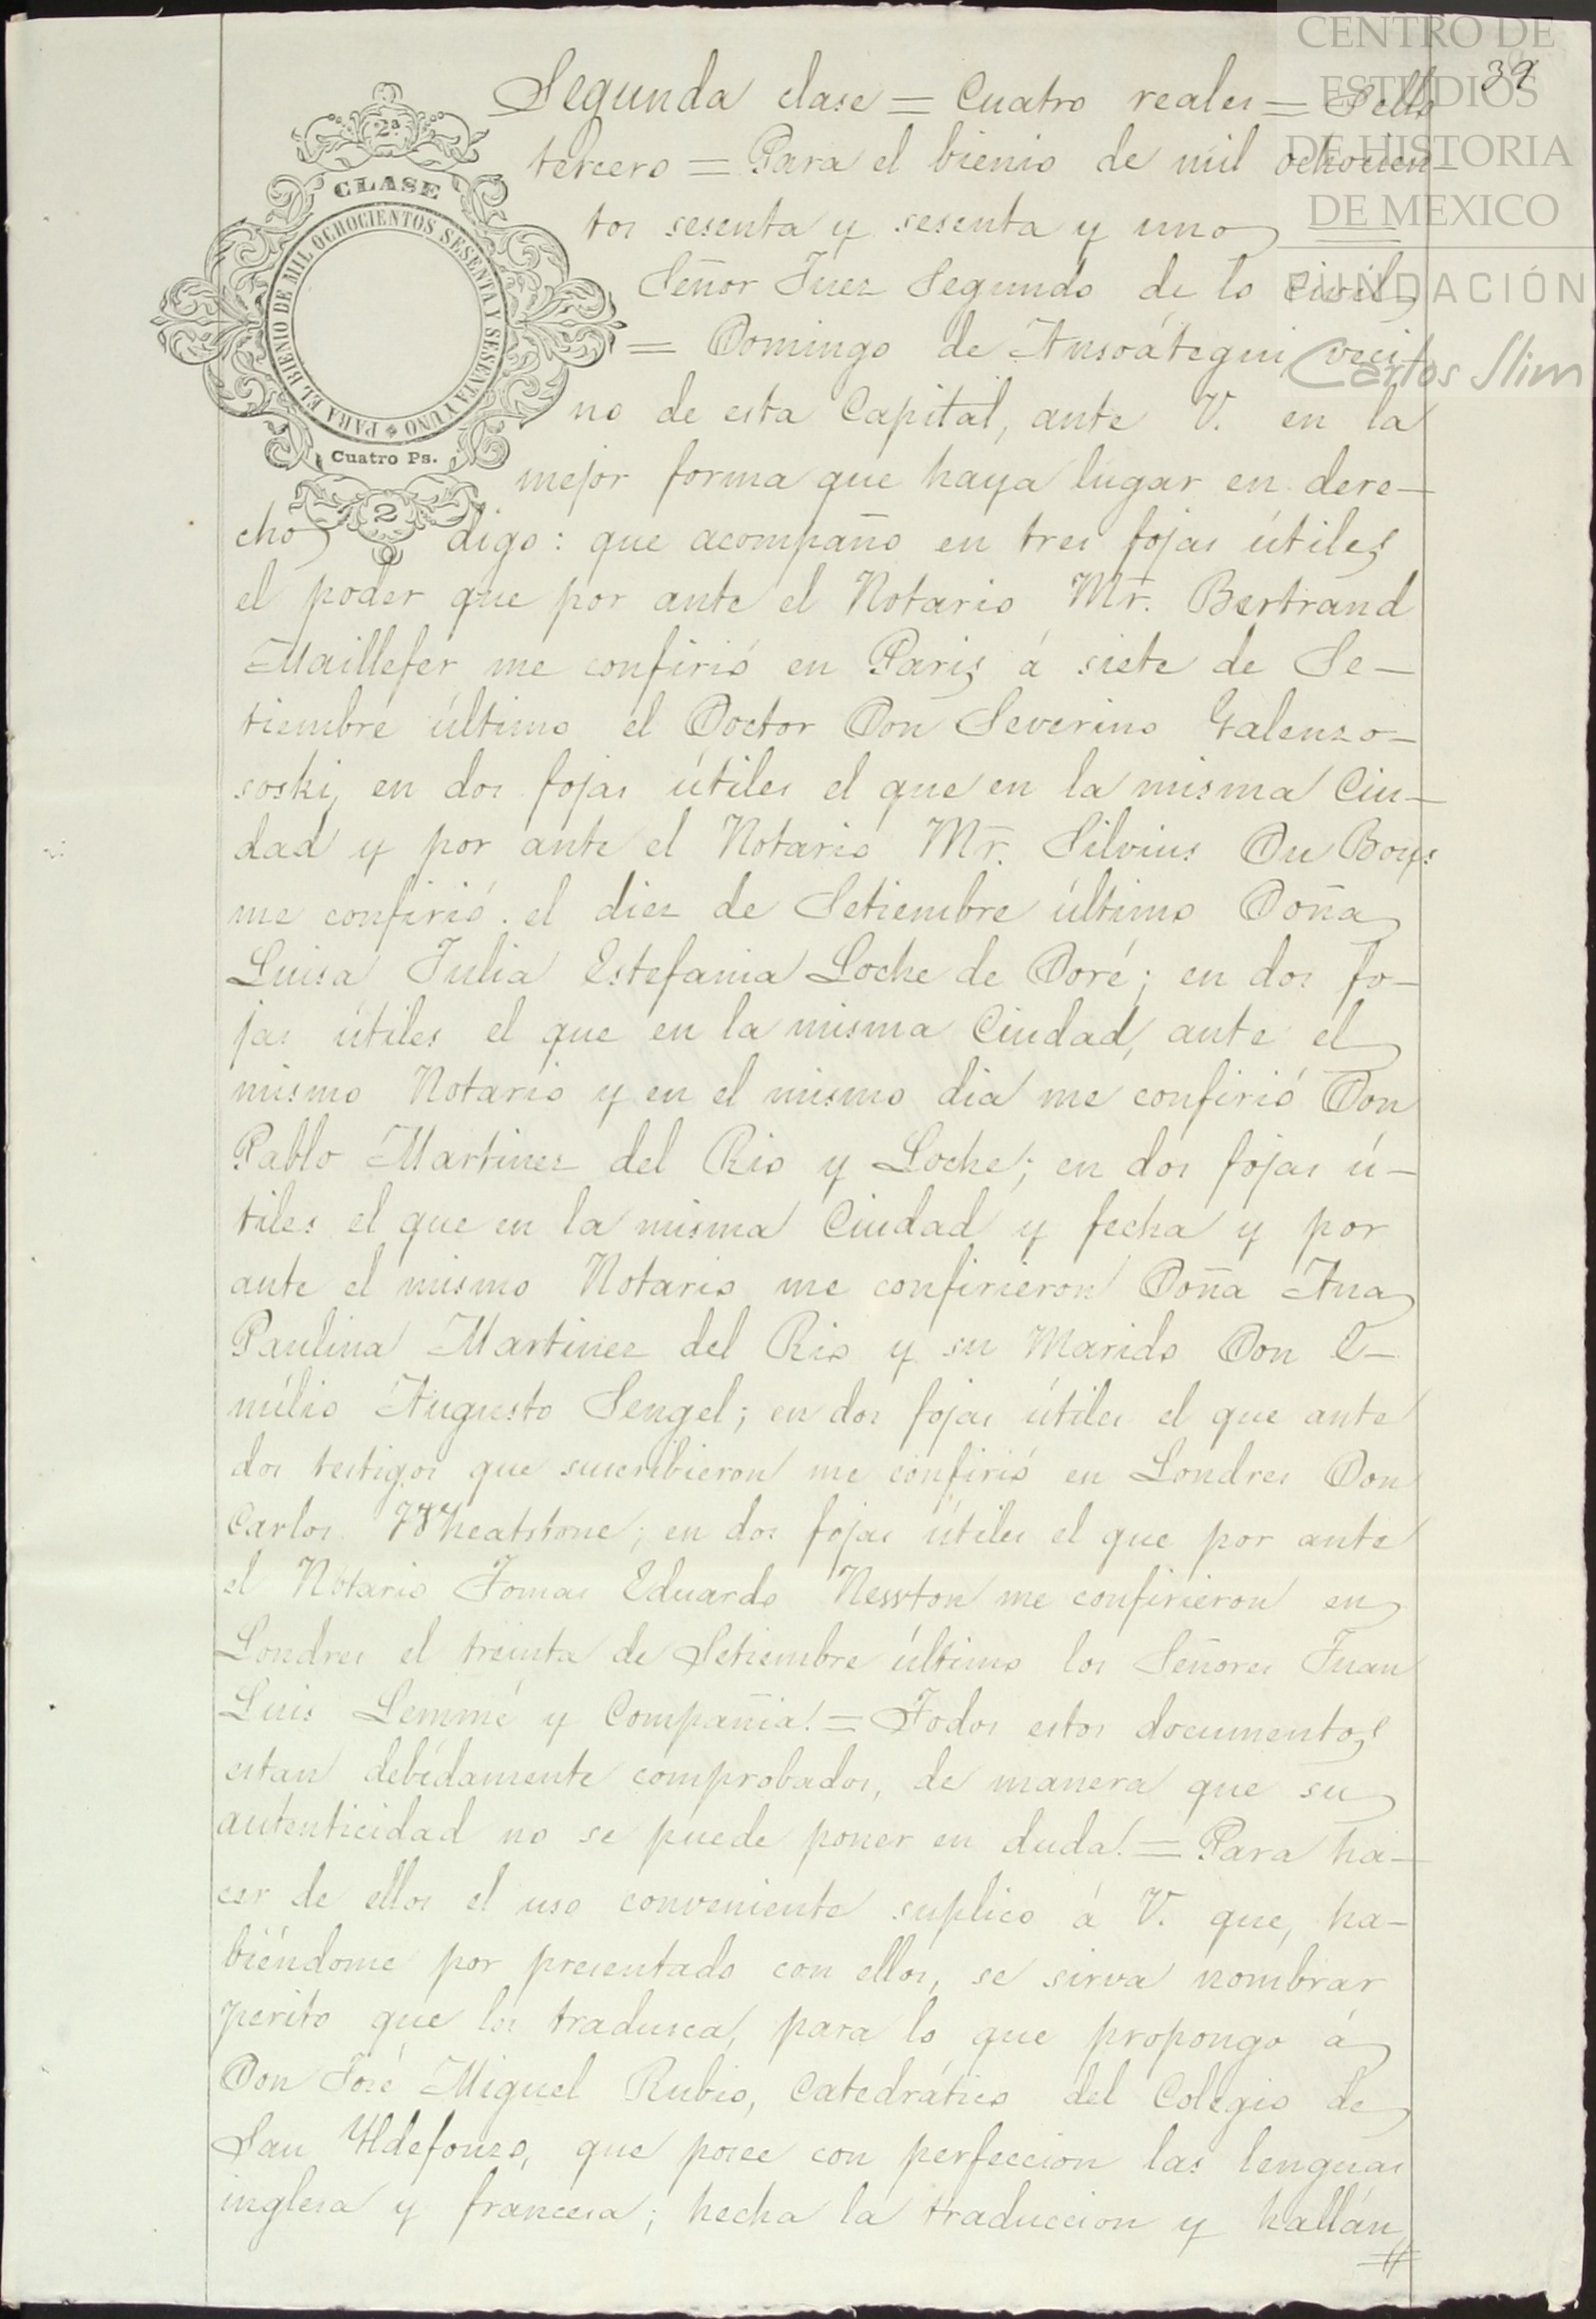 CENTRO DE
ESTUDIOS
DE HISTORIA
DE MEXICO
FUNDACIÓN
Carlos Slim
39
2ª
CLASE
PARA EL BIENIO DE MIL OCHOCIENTOS SESENTA Y SESENTA Y UNO
Cuatro Ps.
2
Segunda clase = Cuatro reales = Sello
tercero = Para el bienio de mil ochocien
tos sesenta y sesenta y uno
Señor Juez Segundo de lo Civil
= Domingo de Ansoátegui, veci-
no de esta Capital, ante V. en la
mejor forma que haya lugar en dere-
cho digo: que acompaño en tres fojas útiles
el poder que por ante el Notario Mr. Bertrand
Maillefer me confirió en Paris á siete de Se-
tiembre último el Doctor Don Severino Galenzo-
soski, en dos fojas útiles el que en la misma Ciu-
dad y por ante el Notario Mr. Silvius Du Boys
me confirió el diez de Setiembre último Doña
Luisa Julia Estefania Loche de Doré; en dos fo-
jas útiles el que en la misma Ciudad, ante el
mismo Notario y en el mismo dia me confirió Don
Pablo Martinez del Rio y Loche; en dos fojas ú-
tiles el que en la misma Ciudad y fecha y por
ante el mismo Notario me confirieron Doña Ana
Paulina Martinez del Rio y su Marido Don E-
mílio Augusto Sengel; en dos fojas útiles el que ante
dos testigos que suscribieron me confirió en Londres Don
Carlos Wheatstone; en dos fojas útiles el que por ante
el Notario Tomas Eduardo Nesston me confirieron en
Londres el treinta de Setiembre último los Señores Juan
Luis Lemmé y Compañia. = Todos estos documentos
estan debidamente comprobados, de manera que su
autenticidad no se puede poner en duda. = Para ha-
cer de ellos el uso conveniente suplico á V. que, ha-
biéndome por presentado con ellos, se sirva nombrar
perito que los tradusca, para lo que propongo á
Don José Miguel Rubio, Catedrático del Colegio de
San Yldefonzo, que posee con perfeccion las lenguas
inglesa y francesa; hecha la traduccion y hallán